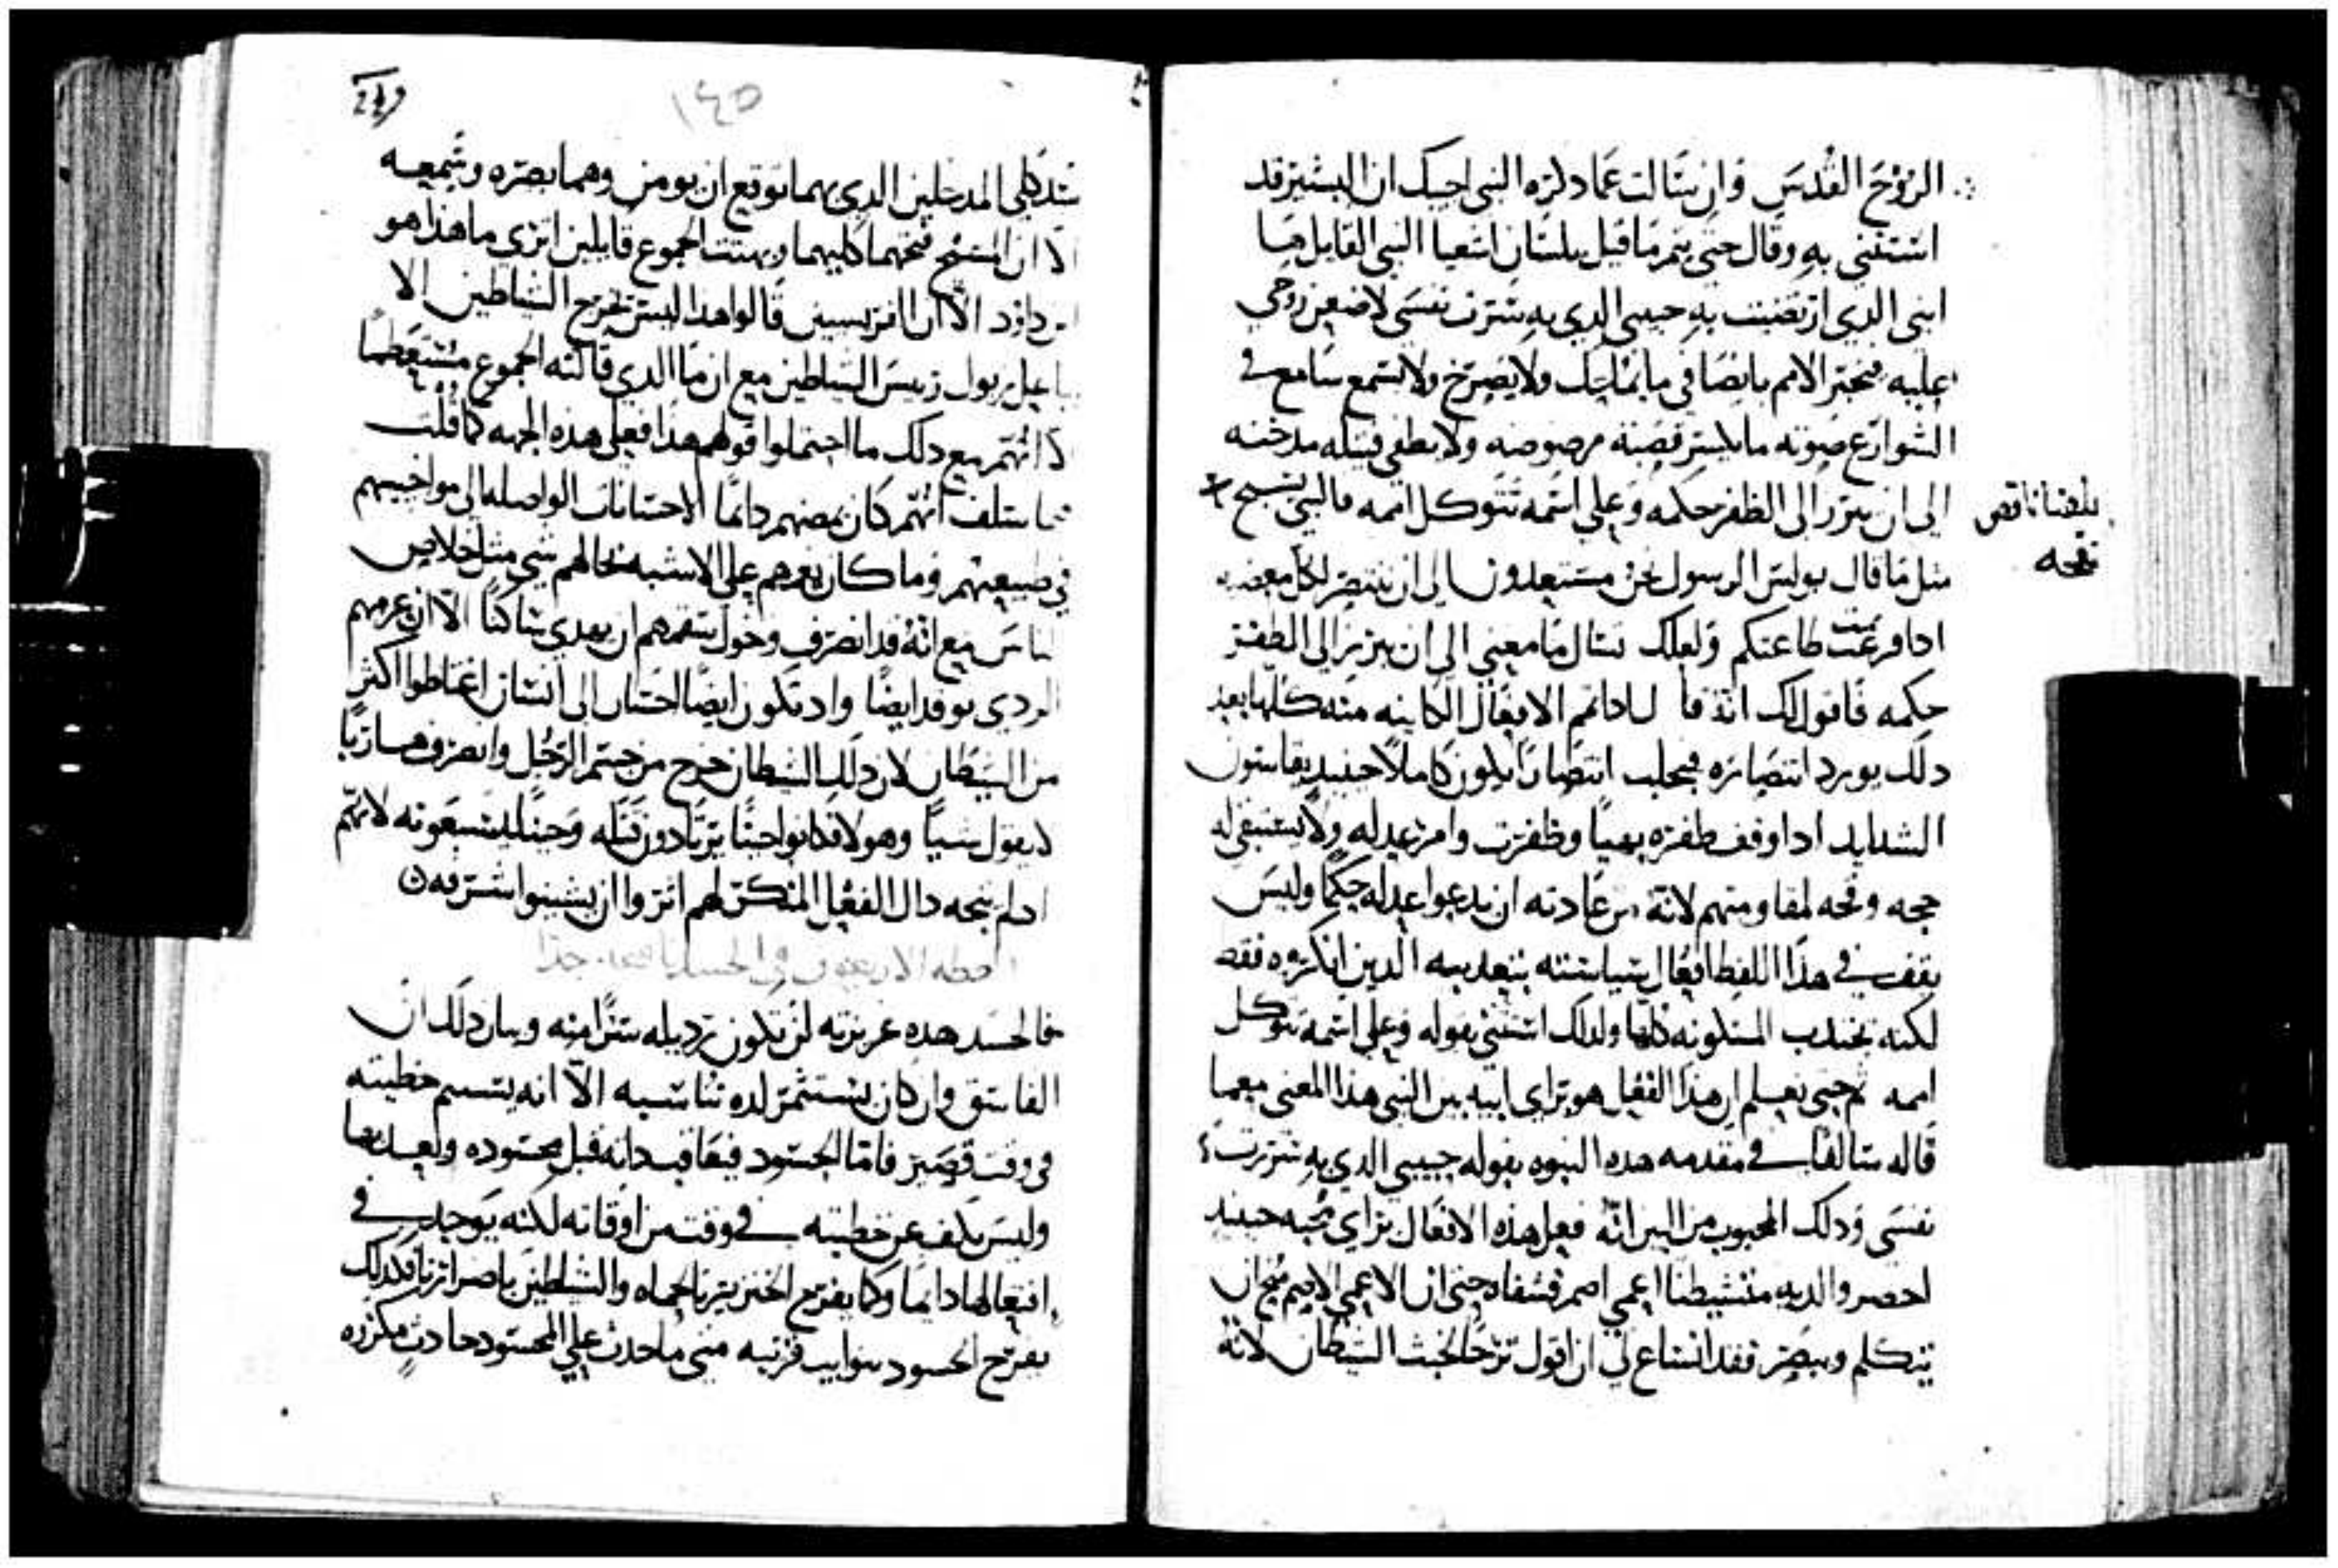 الروح القدس وان سالت عما دكره النبي اجبك ان البشير قد
استثنى به وقال حتى يتم ما قيل بلسان اشعيا النبي القايل ها
ابني الدي ارتضيت به حبيبي الدي به سرت نفسي لاضعن روحي
عليه فيخبر الامم بالقضا في ما يماحك ولا يصرخ ولا يسمع سامع في
الشوارع صوته ما يكسر قصبة مرضوضه ولا يطفي فتيله مدخنه
الى ان يبرز الى الظفر حكمه وعلى اسمه تتوكل اممه فالنبي يسبح
بلغنا ناقص
فتحه
مثل ما قال بولس الرسول نحن مستعدون الى ان ننتصر لكل معصيه
ادا فرغت طاعتكم ولعلك تسال ما معنى الى ان يبرز الى الظفر
حكمه فاقول لك انه قال ادا تمم الافعال الكاينه منه كلها بعد
دلك يورد انتصاره فيجلب انتصارا يكون كاملا حينيد يقاسون
الشدايد ادا وقف ظفره بهيا وظفرت وامر عدله ولا يستبقي له
حجه وقحه لمقاومتهم لانه من عادته ان يدعوا عدله حكما وليس
يقف في هدا اللفظ افعال سياسته بتعديبه الدين انكروه فقط
لكنه يجتدب المسكونه كلها ولدلك استثنى بقوله وعلى اسمه تتوكل
اممه ثم حتى تعلم ان هدا الفعل هو براي ابيه بين النبي هدا المعنى معما
قاله سالفا في مقدمه هده النبوه بقوله حبيبي الدي به سرت
نفسي ودلك المحبوب من البين انه فعل هده الافعال براي محبه حينيد
احضروا لديه متشيطنا اعمى اصم فشفاه حتى ان الاعمى الاصم
يتكلم ويبصر فقد انساع لي ان اقول ترحا لخبث الشيطان لانه
١٤٥
سد كلى المدخلين الدي بهما توقع ان يومن وهما بصره وسمعه
الا ان المسيح فتحهما كليهما وبهتت الجموع قايلين اترى ما هدا هو
ابن داود الا ان الفريسيين قالوا هدا ليس يخرج الشياطين الا
بباعلزبول رييس الشياطين مع ان ما الدي قالته الجموع مستعظما
الا انهم مع دلك ما احتملوا قولهم هدا فعلى هده الجهه كما قلت
فيما سلف انهم كان يمضهم دايما الاحسانات الواصله الى مواخيهم
في طبيعتهم وما كان يغمهم على الاشبه بحالهم شي مثل خلاص
الناس مع انه قد انصرف وخول سقمهم ان يهدى ساكنا الا ان غرمهم
الردي توقد ايضا واد تكون ايضا احسان الى انسان اغتاظوا اكثر
من الشيطان لان دلك الشيطان خرج من جسم الرجل وانصرف هاربا
لا يقول شيا وهولا قد كانوا حينا يرتادون قتله وحينا يشنعونه لانهم
اد لم يتجه داك الفعل المنكر لهم اثروا ان يشينوا شرفه
العظه الاربعون في الحسد نافعه جدا
فالحسد هده غريزته لن تكون رديله شرا منه وبيان دلك ان
الفاسق وان كان يستثمر لده تناسبه الا انه يتمم خطيته
في وقت قصير فاما الحسود فيعاقب داته قبل محسوده وبعدها
وليس يكف عن خطيته في وقت من اوقاته لكنه يوجد في
افتعالها دايما وكما يفرح الخنزير بالحماه والشياطين باضرارنا فكدلك
يفرح الحسود بنوايب قريبه متى ما حدث على المحسود حادث مكروه